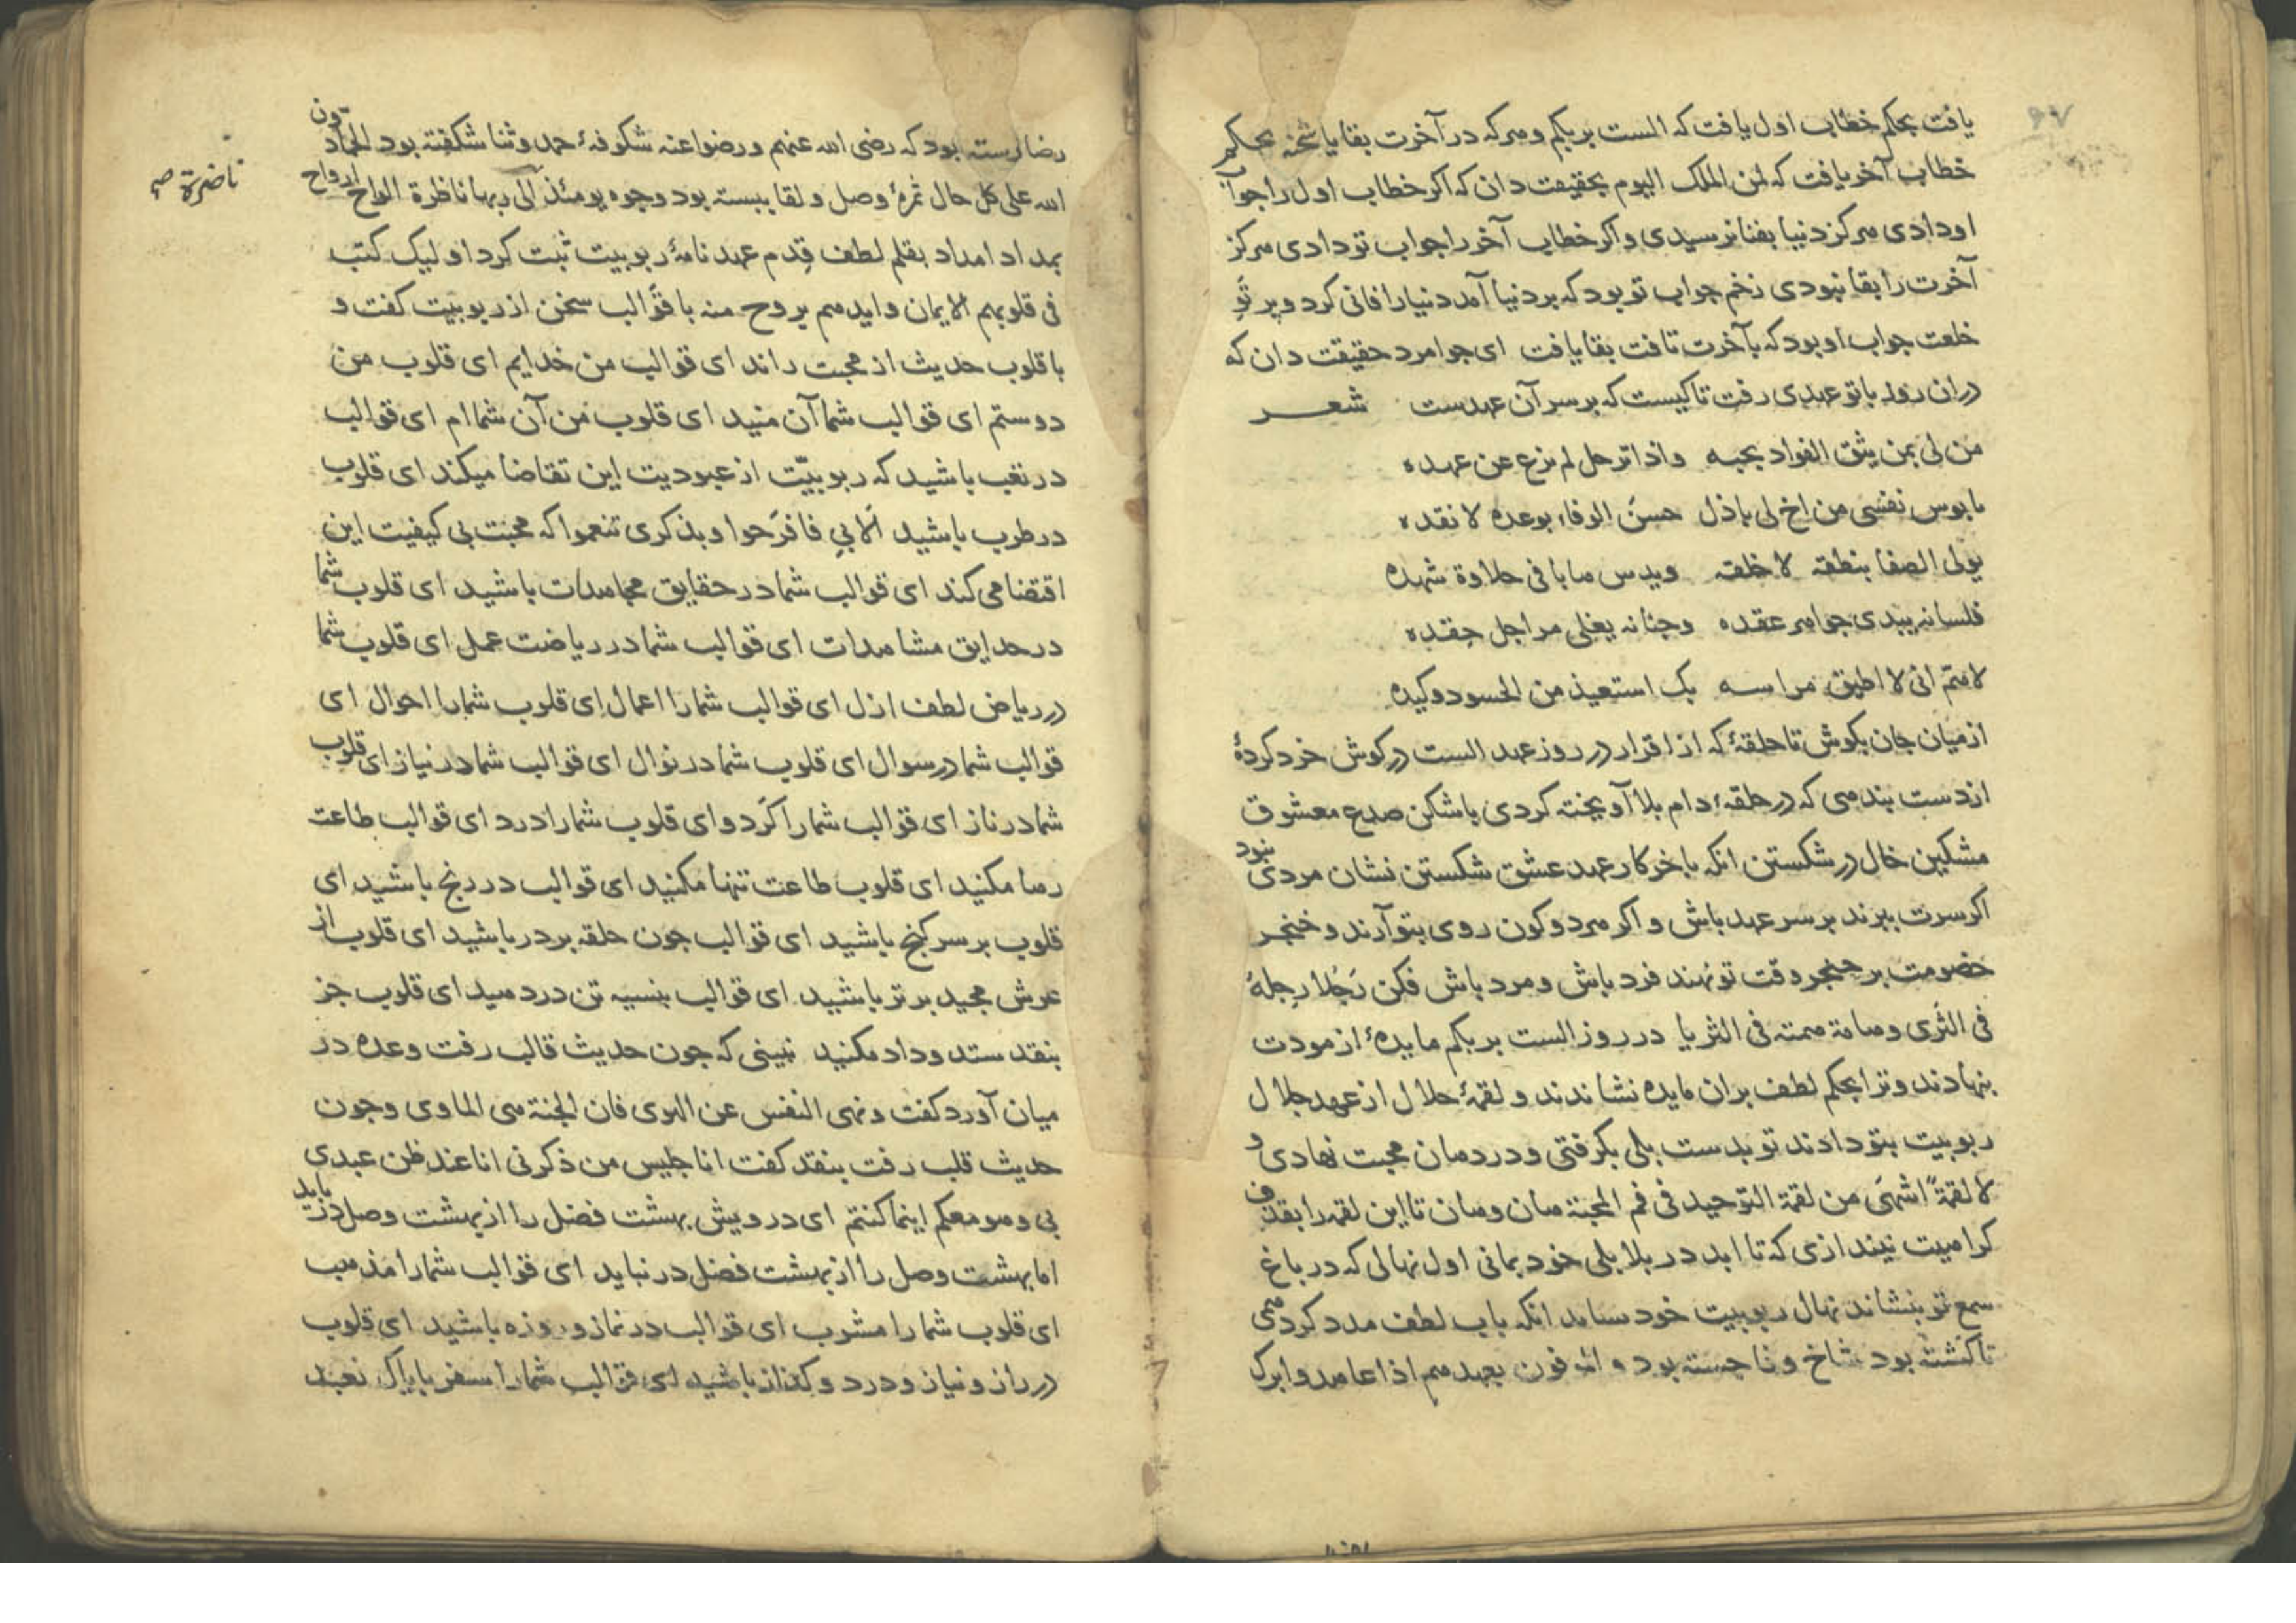 یافت بحکم خطاب اول یافت که الست بربکم و هرکه در آخرت بقا یافت بحکم
خطاب آخر یافت که لمن الملک الیوم بحقیقت دان که اکر خطاب اول را جواب
او دادی هرکز دنیا بفنا نرسیدی و اکر خطاب آخر را جواب تو دادی هرکز
آخرت را بقا نبودی زخم جواب تو بود که بر دنیا آمد دنیا را فانی کرد و پرتو
خلعت جواب او بود که بآخرت تافت بقا یافت ای جوامرد حقیقت دان که
در ان روز با تو عهدی رفت تا کیست که بر سر آن عهدست شعر
من لی بمن یثق الفواد بحبه واذا ترحل لم یزع عن عهده
یا بوس نفسی من اخ لی باذل حسن الوفاء بوعده لا نقده
یولی الصفا بنطقه لا خلقه ویدس صابا فی حلاوة شهده
فلسانه یبدی جواهر عقده وجنانه یغلی مراجل حقده
لاهم انی لا اطیق مراسه بک استعیذ من الحسود وکیده
از میان جان بکوش تا حلقهٔ که از اقرار در روز عهد الست در کوش خرد کردهٔ
از دست بندهی که در حلقهٔ دام بلا آویخته کردی باشکن صدع معشوق
مشکین خال در شکستن انکه باخر کار عهد عشق شکستن نشان مردی نبود
اکر سرت ببرند بر سر عهد باش و اکر هر دو کون روی بتو آرند و خنجر
خصومت بر حنجر وقت تو نهند فرد باش و مرد باش فکن رجلا رجله
فی الثری وهامة همته فی الثریا در روز الست بربکم مایدهٔ از مودت
بنهادند و ترا بحکم لطف بران مایده نشاندند و لقمهٔ حلال از عهد جلال
ربوبیت بتو دادند تو بدست بلی بکرفتی و در دهان محبت نهادی و
لا لقمة اشهی من لقمة التوحید فی فم المحبة هان و هان تا این لقمه را بقذف
کراهیت نیندازی که تا ابد در بلا بلی خود بمانی اول نهالی که در باغ
سمع تو بنشاند نهال ربوبیت خود ساند انکه باب لطف مدد کرد می
تا کشته بود شاخ وفا جسته بود والموفون بعهدهم اذا عاهدوا برک
رضا رسته بود که رضی الله عنهم و رضوا عنه شکوفهٔ حمد و ثنا شکفته بود الحمادون
الله علی کل حال ثمرهٔ وصل و لقا ببسته بود وجوه یومئذ الی ربها ناظرة الواح ارواح
ناضرة صح
بمداد امداد بقلم لطف قدم عهدنامهٔ ربوبیت ثبت کرد اولیک کتب
فی قلوبهم الایمان وایدهم بروح منه با قوالب سخن از ربوبیت کفت و
با قلوب حدیث از محبت راند ای قوالب من خدایم ای قلوب من
دوستم ای قوالب شما آن منید ای قلوب من آن شماام ای قوالب
در تعب باشید که ربوبیّت از عبودیت این تقاضا میکند ای قلوب
در طرب باشید الا بی فافرحوا وبذکری تنعموا که محبت بی کیفیت این
اقتضا می کند ای قوالب شما در حقایق مجاهدات باشید ای قلوب شما
در حدایق مشاهدات ای قوالب شما در ریاضت عمل ای قلوب شما
در ریاض لطف ازل ای قوالب شما را اعمال ای قلوب شما را احوال ای
قوالب شما در سوال ای قلوب شما در نوال ای قوالب شما در نیاز ای قلوب
شما در ناز ای قوالب شما را کرد و ای قلوب شما را درد ای قوالب طاعت
رها مکنید ای قلوب طاعت تنها مکنید ای قوالب در رنج باشید ای
قلوب بر سر کنج باشید ای قوالب جون حلقه بر در باشید ای قلوب از
عرش مجید برتر باشید ای قوالب بنسیه تن در دهید ای قلوب جز
بنقد ستد و داد مکنید نبینی که جون حدیث قالب رفت وعده در
میان آورد کفت ونهی النفس عن الهوی فان الجنة هی الماوی و جون
حدیث قلب رفت بنقد کفت انا جلیس من ذکرنی انا عند ظن عبدی
بی وهو معکم اینما کنتم ای درویش بهشت فضل را از بهشت وصل در باید
اما بهشت وصل را از بهشت فضل در نباید ای قوالب شما را مذهب
ای قلوب شما را مشرب ای قوالب در نماز و روزه باشید ای قلوب
در راز و نیاز و درد و کداز باشید ای قوالب شما را سفر بایاک نعبد